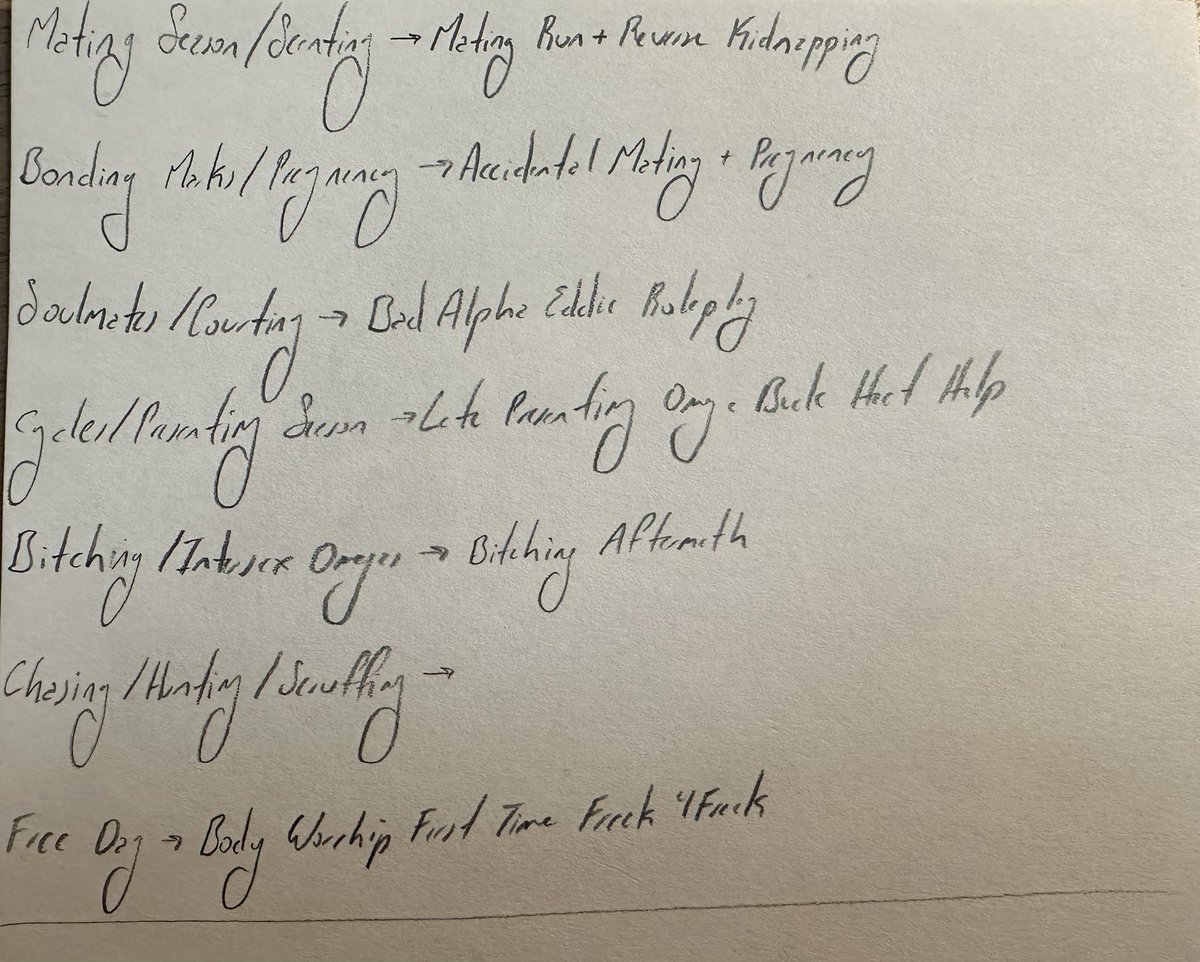 Mating Season/Scenting → Mating Run + Reverse Kidnapping
Bonding Marks/Pregnancy → Accidental Mating + Pregnancy
Soulmates/Courting → Bad Alpha Eddie Roleplay
Cycles/Presenting Season → Late Presenting Omega Buck Heat Help
Bitching/Intersex Omegas → Bitching Aftermath
Chasing/Hunting/Scruffing →
Free Day → Body Worship First Time Freek 4 Freek